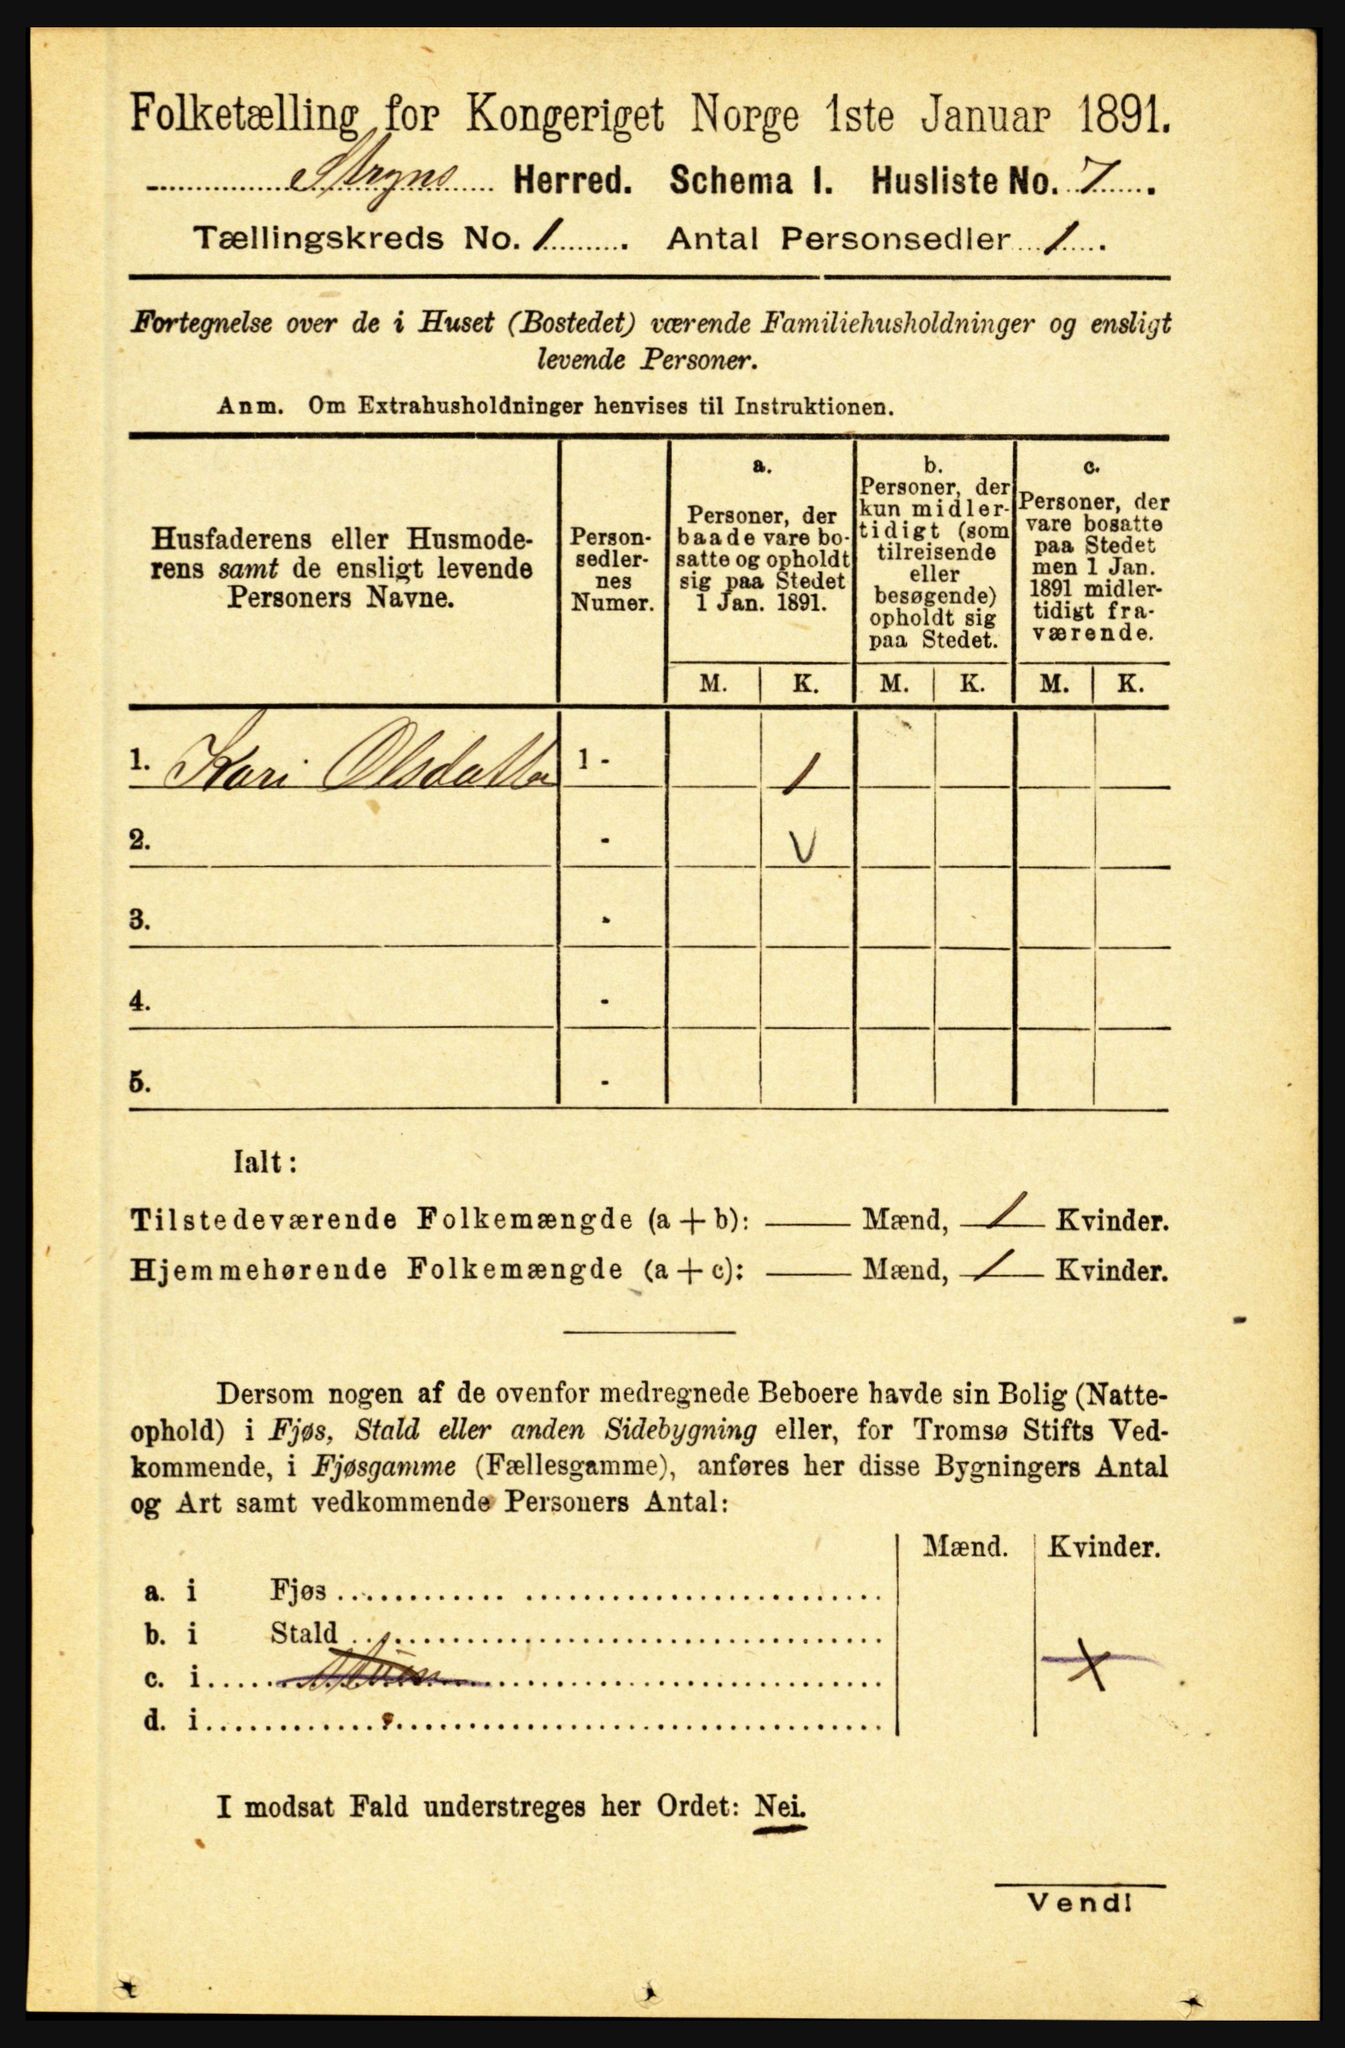 Folketælling for Kongeriget Norge 1ste Januar 1891.
Stryns Herred. Schema I. Husliste No. 7.
Tællingskreds No. 1. Antal Personsedler 1.
Fortegnelse over de i Huset (Bostedet) værende Familiehusholdninger og ensligt
levende Personer.
Anm. Om Extrahusholdninger henvises til Instruktionen.
Husfaderens eller Husmode-
rens samt de ensligt levende
Personers Navne.
Person-
sedler-
nes
Numer.
a.
Personer, der
baade vare bo-
satte og opholdt
sig paa Stedet
1 Jan. 1891.
b.
Personer, der
kun midler-
tidigt (som
tilreisende
eller
besøgende)
opholdt sig
paa Stedet.
c.
Personer, der
vare bosatte
paa Stedet
men 1 Jan.
1891 midler-
tidigt fra-
værende.
M. K. M. K. M. K.
1. Kari Olsdatter 1 - 1
2. - V
3. -
4. -
5. -
Ialt:
Tilstedeværende Folkemængde (a + b): — Mænd, 1 Kvinder.
Hjemmehørende Folkemængde (a + c): — Mænd, 1 Kvinder.
Dersom nogen af de ovenfor medregnede Beboere havde sin Bolig (Natte-
ophold) i Fjøs, Stald eller anden Sidebygning eller, for Tromsø Stifts Ved-
kommende, i Fjøsgamme (Fællesgamme), anføres her disse Bygningers Antal
og Art samt vedkommende Personers Antal:
Mænd. Kvinder.
a. i Fjøs
b. i Stald
c. i
d. i
I modsat Fald understreges her Ordet: Nei.
Vend!